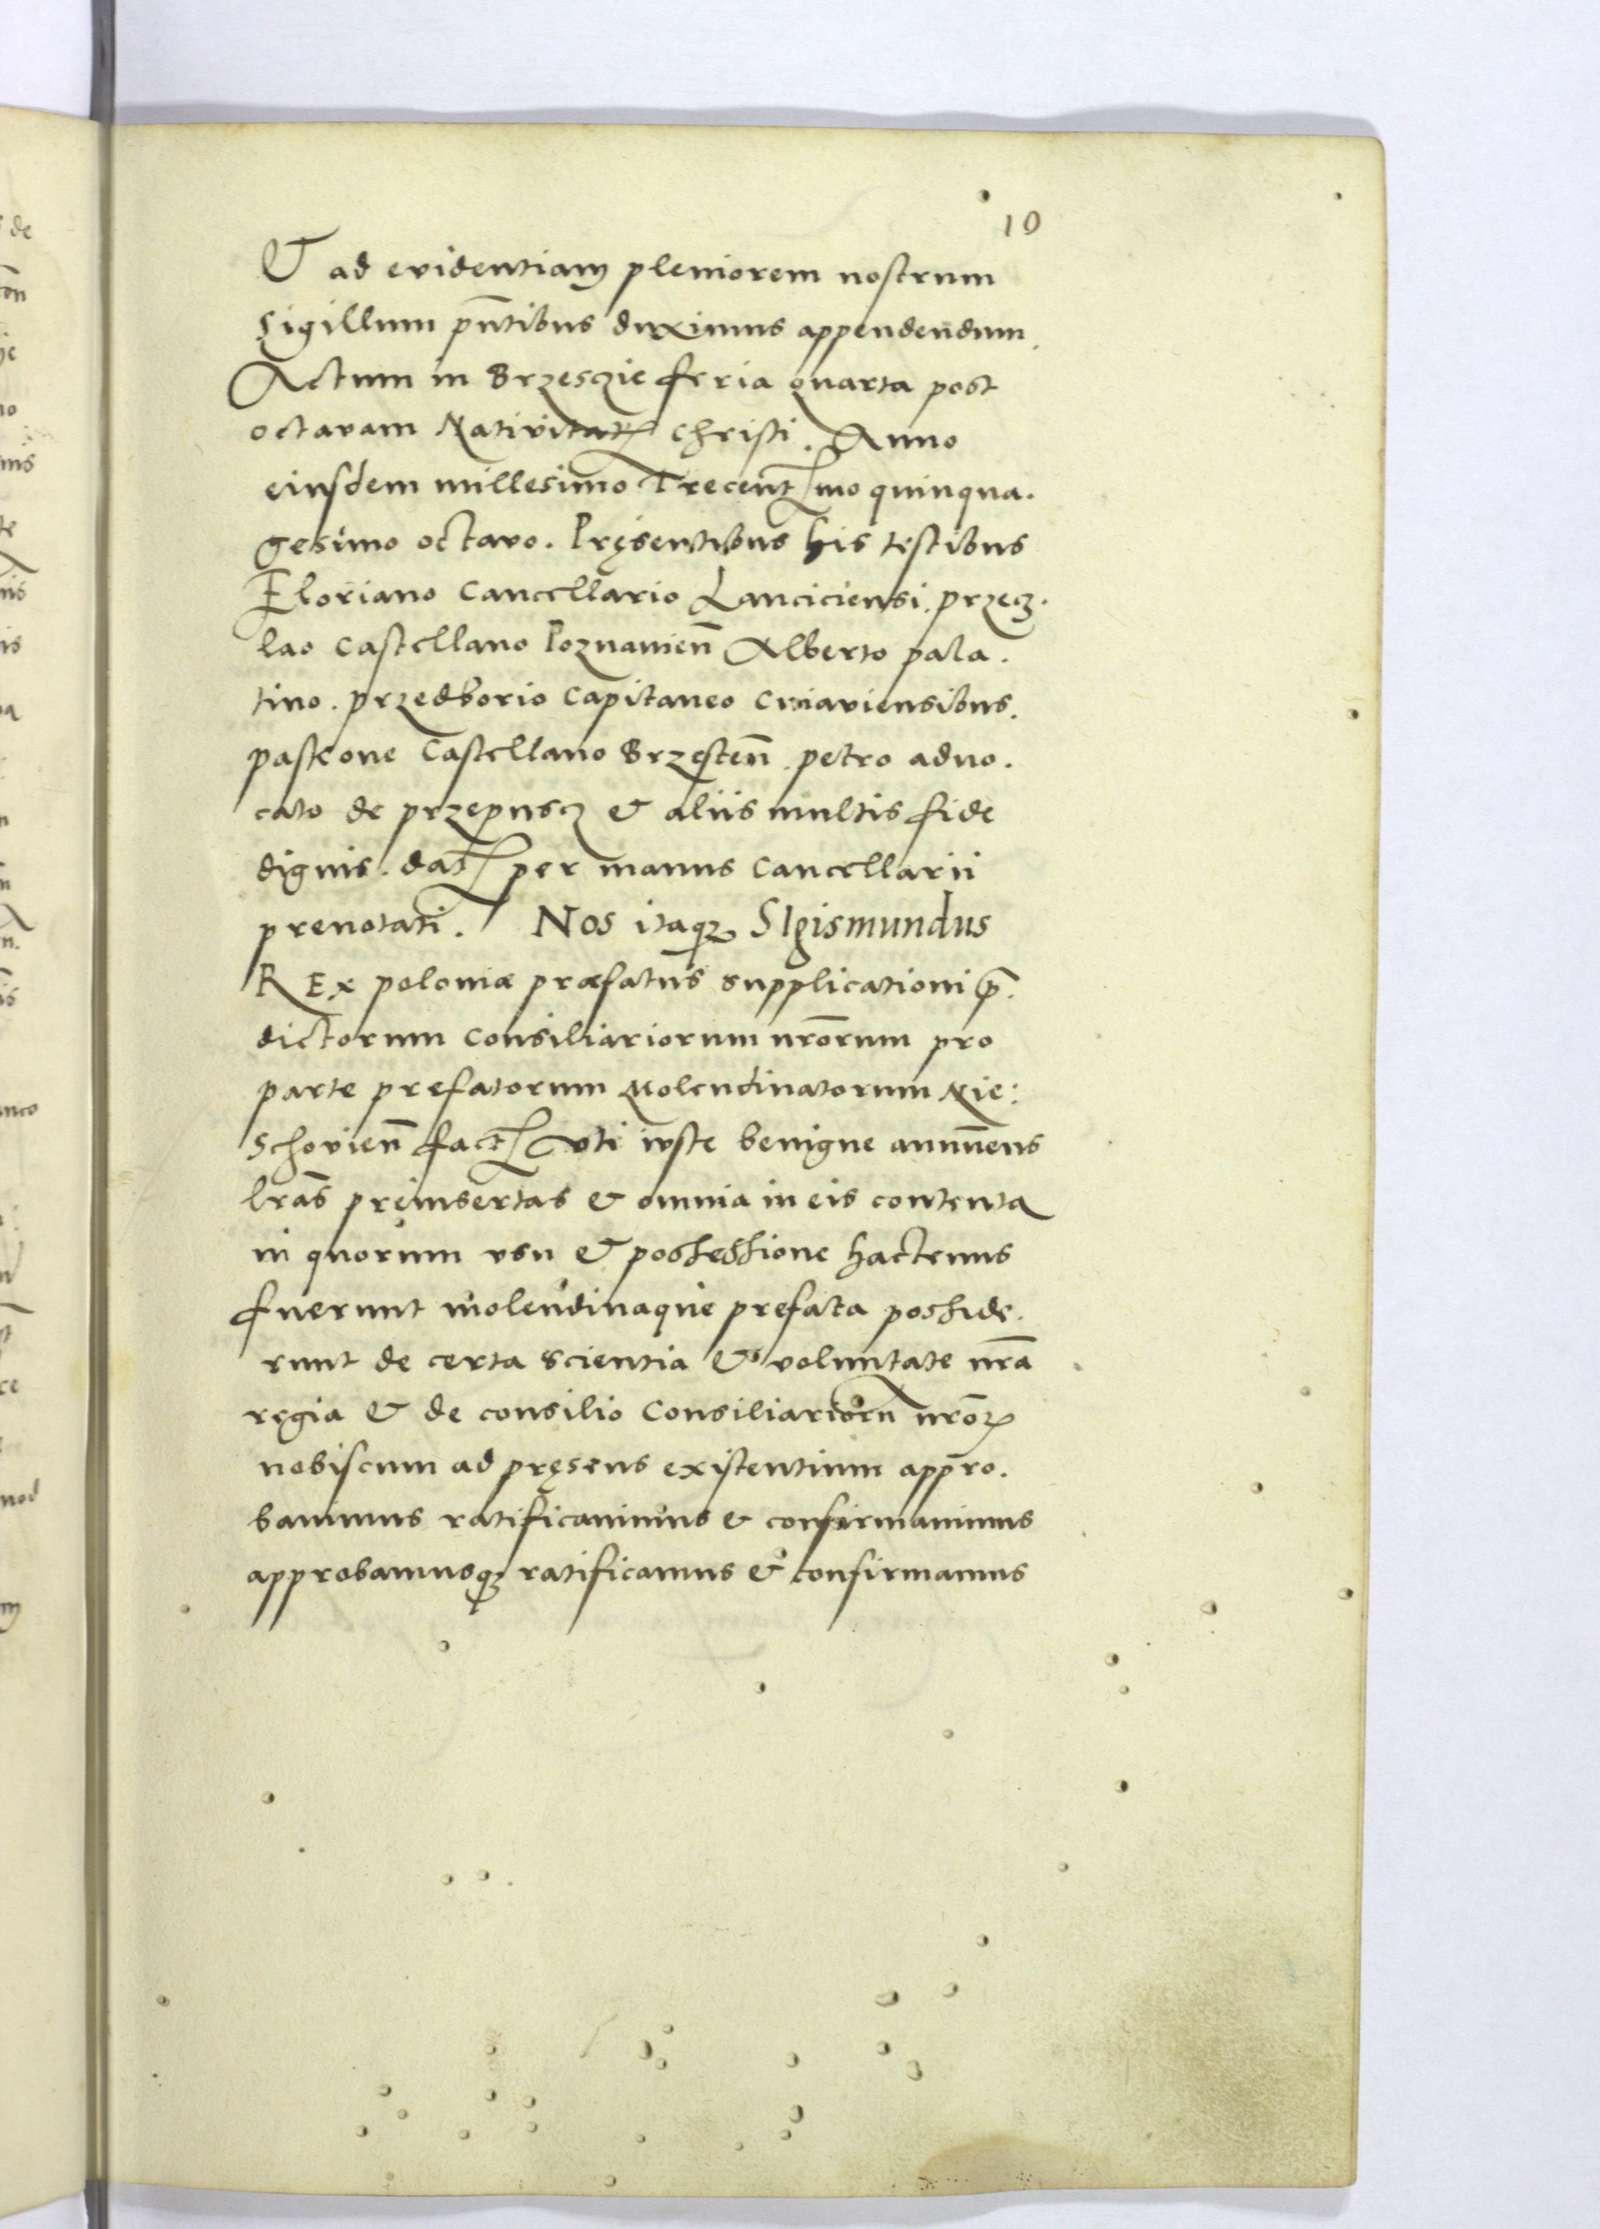 10
Et ad evidentiam pleniorem nostrum
Sigillum pñtibus duximus appendendum.
Actum in Brzesczie feria quarta post
octavam Nativitatꝭ Christi. Anno
eiusdem millesimo Trecentꝭmo quinqua.
gesimo octavo. Pręsentibus his testibus
Floriano Cancellario Lanciciensi. przecz.
lao Castellano Poznanieñ Alberto pala.
tino. przedborio Capitaneo Cuiaviensibus.
pascone Castellano Brzesteñ. petro aduo.
cato de przepusch & aliis multis fide
dignis. datꝭ per manus Cancellarii
prenotati. Nos itaqꝫ SIgismundus
REx poloniæ præfatus supplicationi p̄.
dictorum Consiliariorum nrõrum pro
parte prefatorum Molendinatorum Nie:
schovieñ factꝭ uti iuste benigne annuens
lrãs pręinsertas & omnia in eis contenta
in quorum usu & possessione hactenus
fuerunt molendinaque prefata posside.
runt de certa scientia & voluntate nrã
regia & de consilio Consiliariorũ nrõꝝ
nobiscum ad pręsens existentium appro.
bavimus ratificavimus & confirmavimus
approbamusqꝫ ratificamus & confirmamus